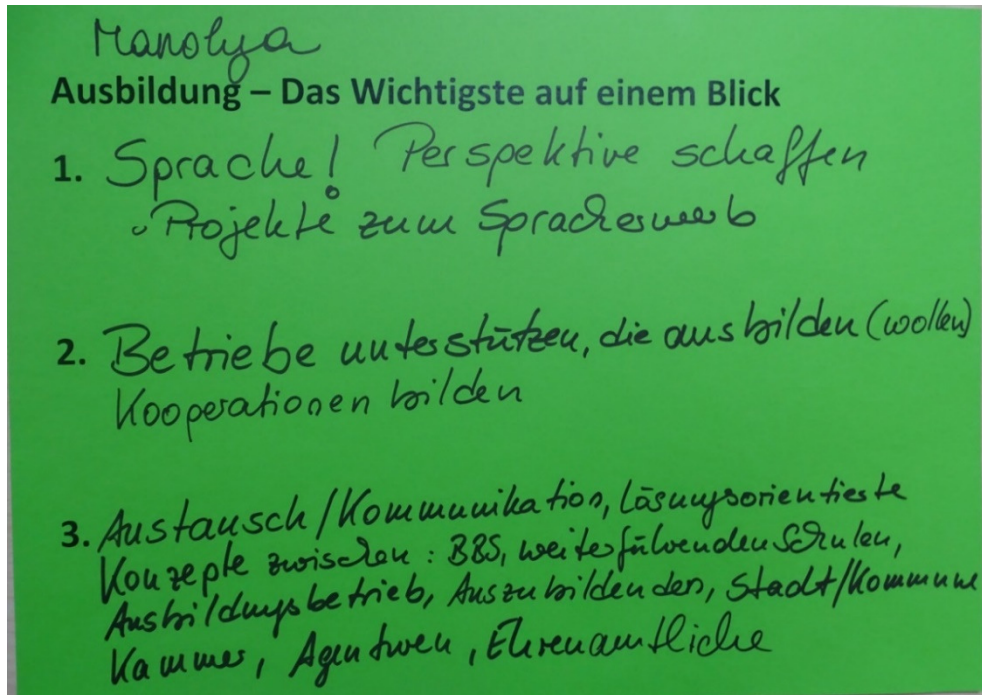 Manolya
Ausbildung – Das Wichtigste auf einem Blick
1. Sprache! Perspektive schaffen
◦ Projekte zum Spracherwerb
2. Betriebe unterstützen, die ausbilden (wollen)
Kooperationen bilden
3. Austausch/Kommunikation, Lösungsorientierte
Konzepte zwischen: BBS, weiterführenden Schulen,
Ausbildungsbetrieb, Auszubildenden, Stadt/Kommune
Kammer, Agenturen, Ehrenamtliche